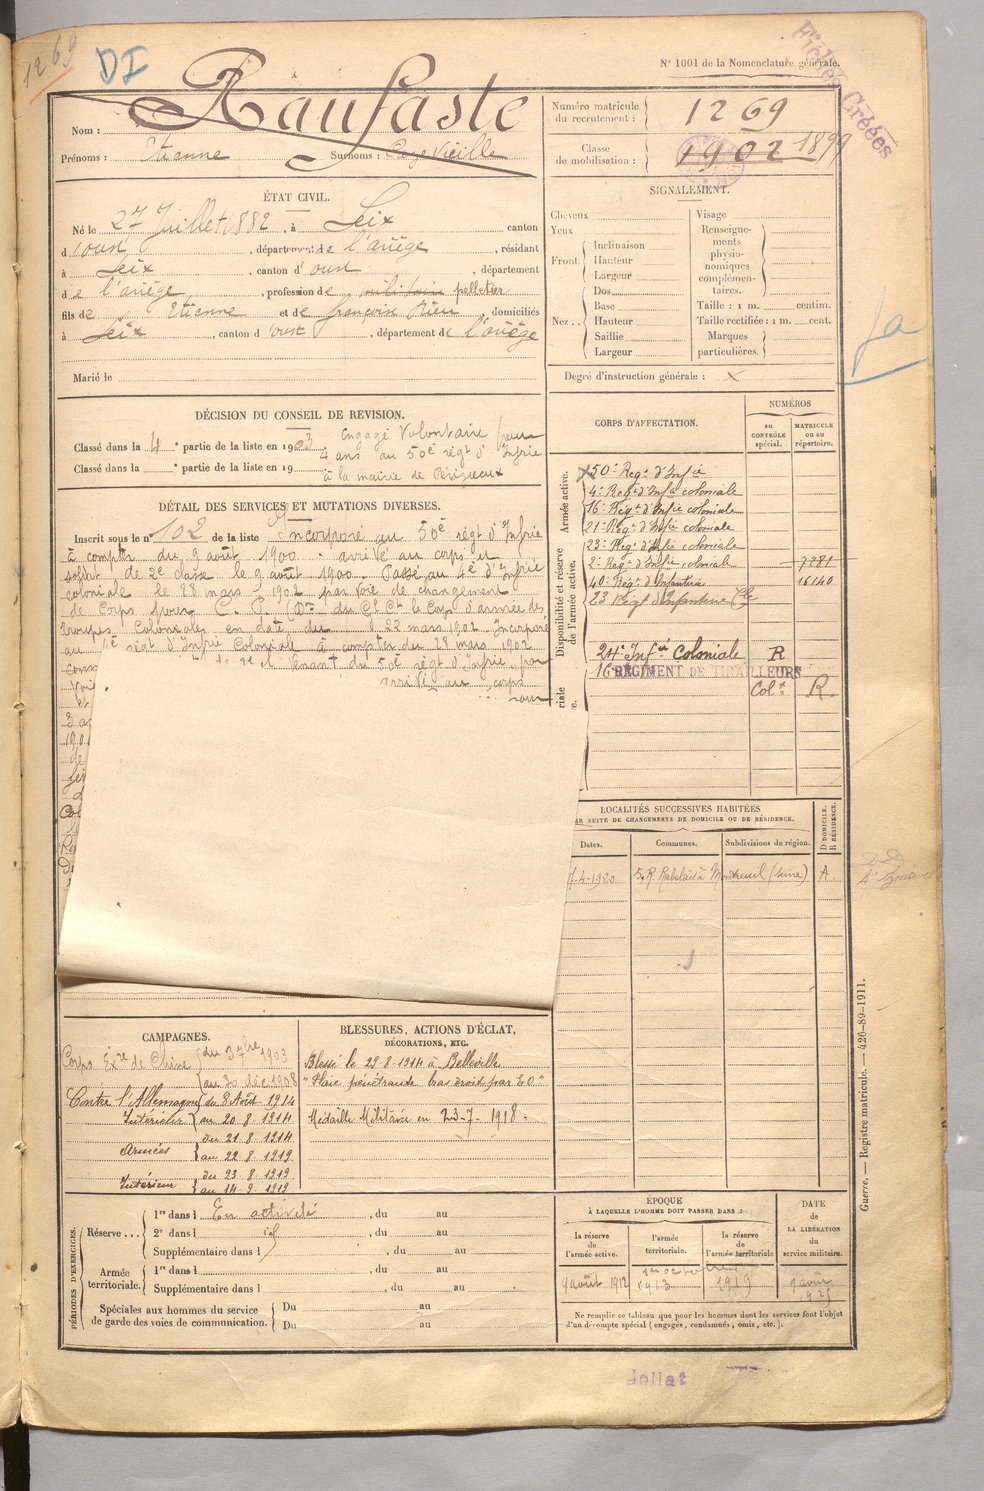 1269
DI
N° 1001 de la Nomenclature générale.
Fiches Créées
Nom : Raufaste
Prénoms : Etienne Surnoms :
Numéro matricule du recrutement : 1269
Classe de mobilisation : 1902 1899
ÉTAT CIVIL.
Né le 27 Juillet 1882, à Seix canton
d'oust, département de l'ariège, résidant
à Seix, canton d'oust, département
de l'ariège, profession de militaire pelletier
fils de Etienne et de françoise Rieu, domiciliés
à Seix, canton d'oust, département de l'ariège
Marié le
SIGNALEMENT.
Cheveux
Yeux
Front. Inclinaison
Hauteur
Largeur
Nez.. Dos
Base
Hauteur
Saillie
Largeur
Visage
Renseignements physionomiques complémentaires.
Taille : 1 m. centim.
Taille rectifiée : 1 m. cent.
Marques particulières.
Degré d'instruction générale : X
DÉCISION DU CONSEIL DE REVISION.
Classé dans la 4e partie de la liste en 1903 Engagé Volontaire pour
4 ans au 50e régt d'Infrie
Classé dans la e partie de la liste en 19 à la mairie de Périgueux
DÉTAIL DES SERVICES ET MUTATIONS DIVERSES.
Inscrit sous le n° 102 de la liste Incorporé au 50e régt d'Infrie
à compter du 9 août 1900 - arrivé au corps et
soldat de 2e classe le 9 août 1900. Passé au 4e d'Infrie
coloniale le 28 mars 1902 par voie de changement
de Corps
troupes Coloniales en date du 22 mars 1902. Incorporé
au régt d'Infrie Coloniale à compter du 28 mars 1902
venant du 50e régt d'Infrie
arrivé au corps
CORPS D'AFFECTATION.
NUMÉROS
au CONTRÔLE spécial.
MATRICULE ou au répertoire.
Armée active.
Disponibilité et réserve de l'armée active.
50e Regt d'Infie
4e Regt d'Infie coloniale
16e Regt d'Infie coloniale
21e Regt d'Infie coloniale
23e Regt d'Infie coloniale
2e Regt d'Infie coloniale 7281
40e Regt d'Infanterie 16140
23 Régt d'Infanterie Cle
24e Infie Coloniale R
16e RÉGIMENT DE TIRAILLEURS
Col. R
LOCALITÉS SUCCESSIVES HABITÉES
PAR SUITE DE CHANGEMENTS DE DOMICILE OU DE RÉSIDENCE.
Dates. Communes. Subdivisions de région. D DOMICILE. R RÉSIDENCE.
7-4-1920 5 R. Rabelais à Montreuil (Seine)
CAMPAGNES.
Corps Exre de Chine du 3 7bre 1903
au 30 déc 1908
Contre l'Allemagne du 8 Août 1914
Intérieur au 20 8 1914
Armées du 21 8 1914
au 22 8 1919
Intérieur du 23 8 1919
au 14 9 1919
BLESSURES, ACTIONS D'ÉCLAT,
DÉCORATIONS, ETC.
Blessé le 29-8-1914 à Belleville
"Plaie pénétrante bras droit par E.O"
Médaille Militaire en 23-7-1918.
PÉRIODES D'EXERCICES.
Réserve... 1re dans l En activité, du au
2e dans l id, du au
Supplémentaire dans l, du au
Armée territoriale. 1re dans l, du au
Supplémentaire dans l, du au
Spéciales aux hommes du service de garde des voies de communication. Du au
Du au
ÉPOQUE
À LAQUELLE L'HOMME DOIT PASSER DANS :
la réserve de l'armée active.
l'armée territoriale.
la réserve de l'armée territoriale
DATE de LA LIBÉRATION du service militaire.
9 août 1912
1er octobre
1913
1919
9 août
1925
Ne remplir ce tableau que pour les hommes dont les services font l'objet
d'un décompte spécial (engagés, condamnés, omis, etc.).
Guerre. — Registre matricule. — 426-89-1911.
Jollat